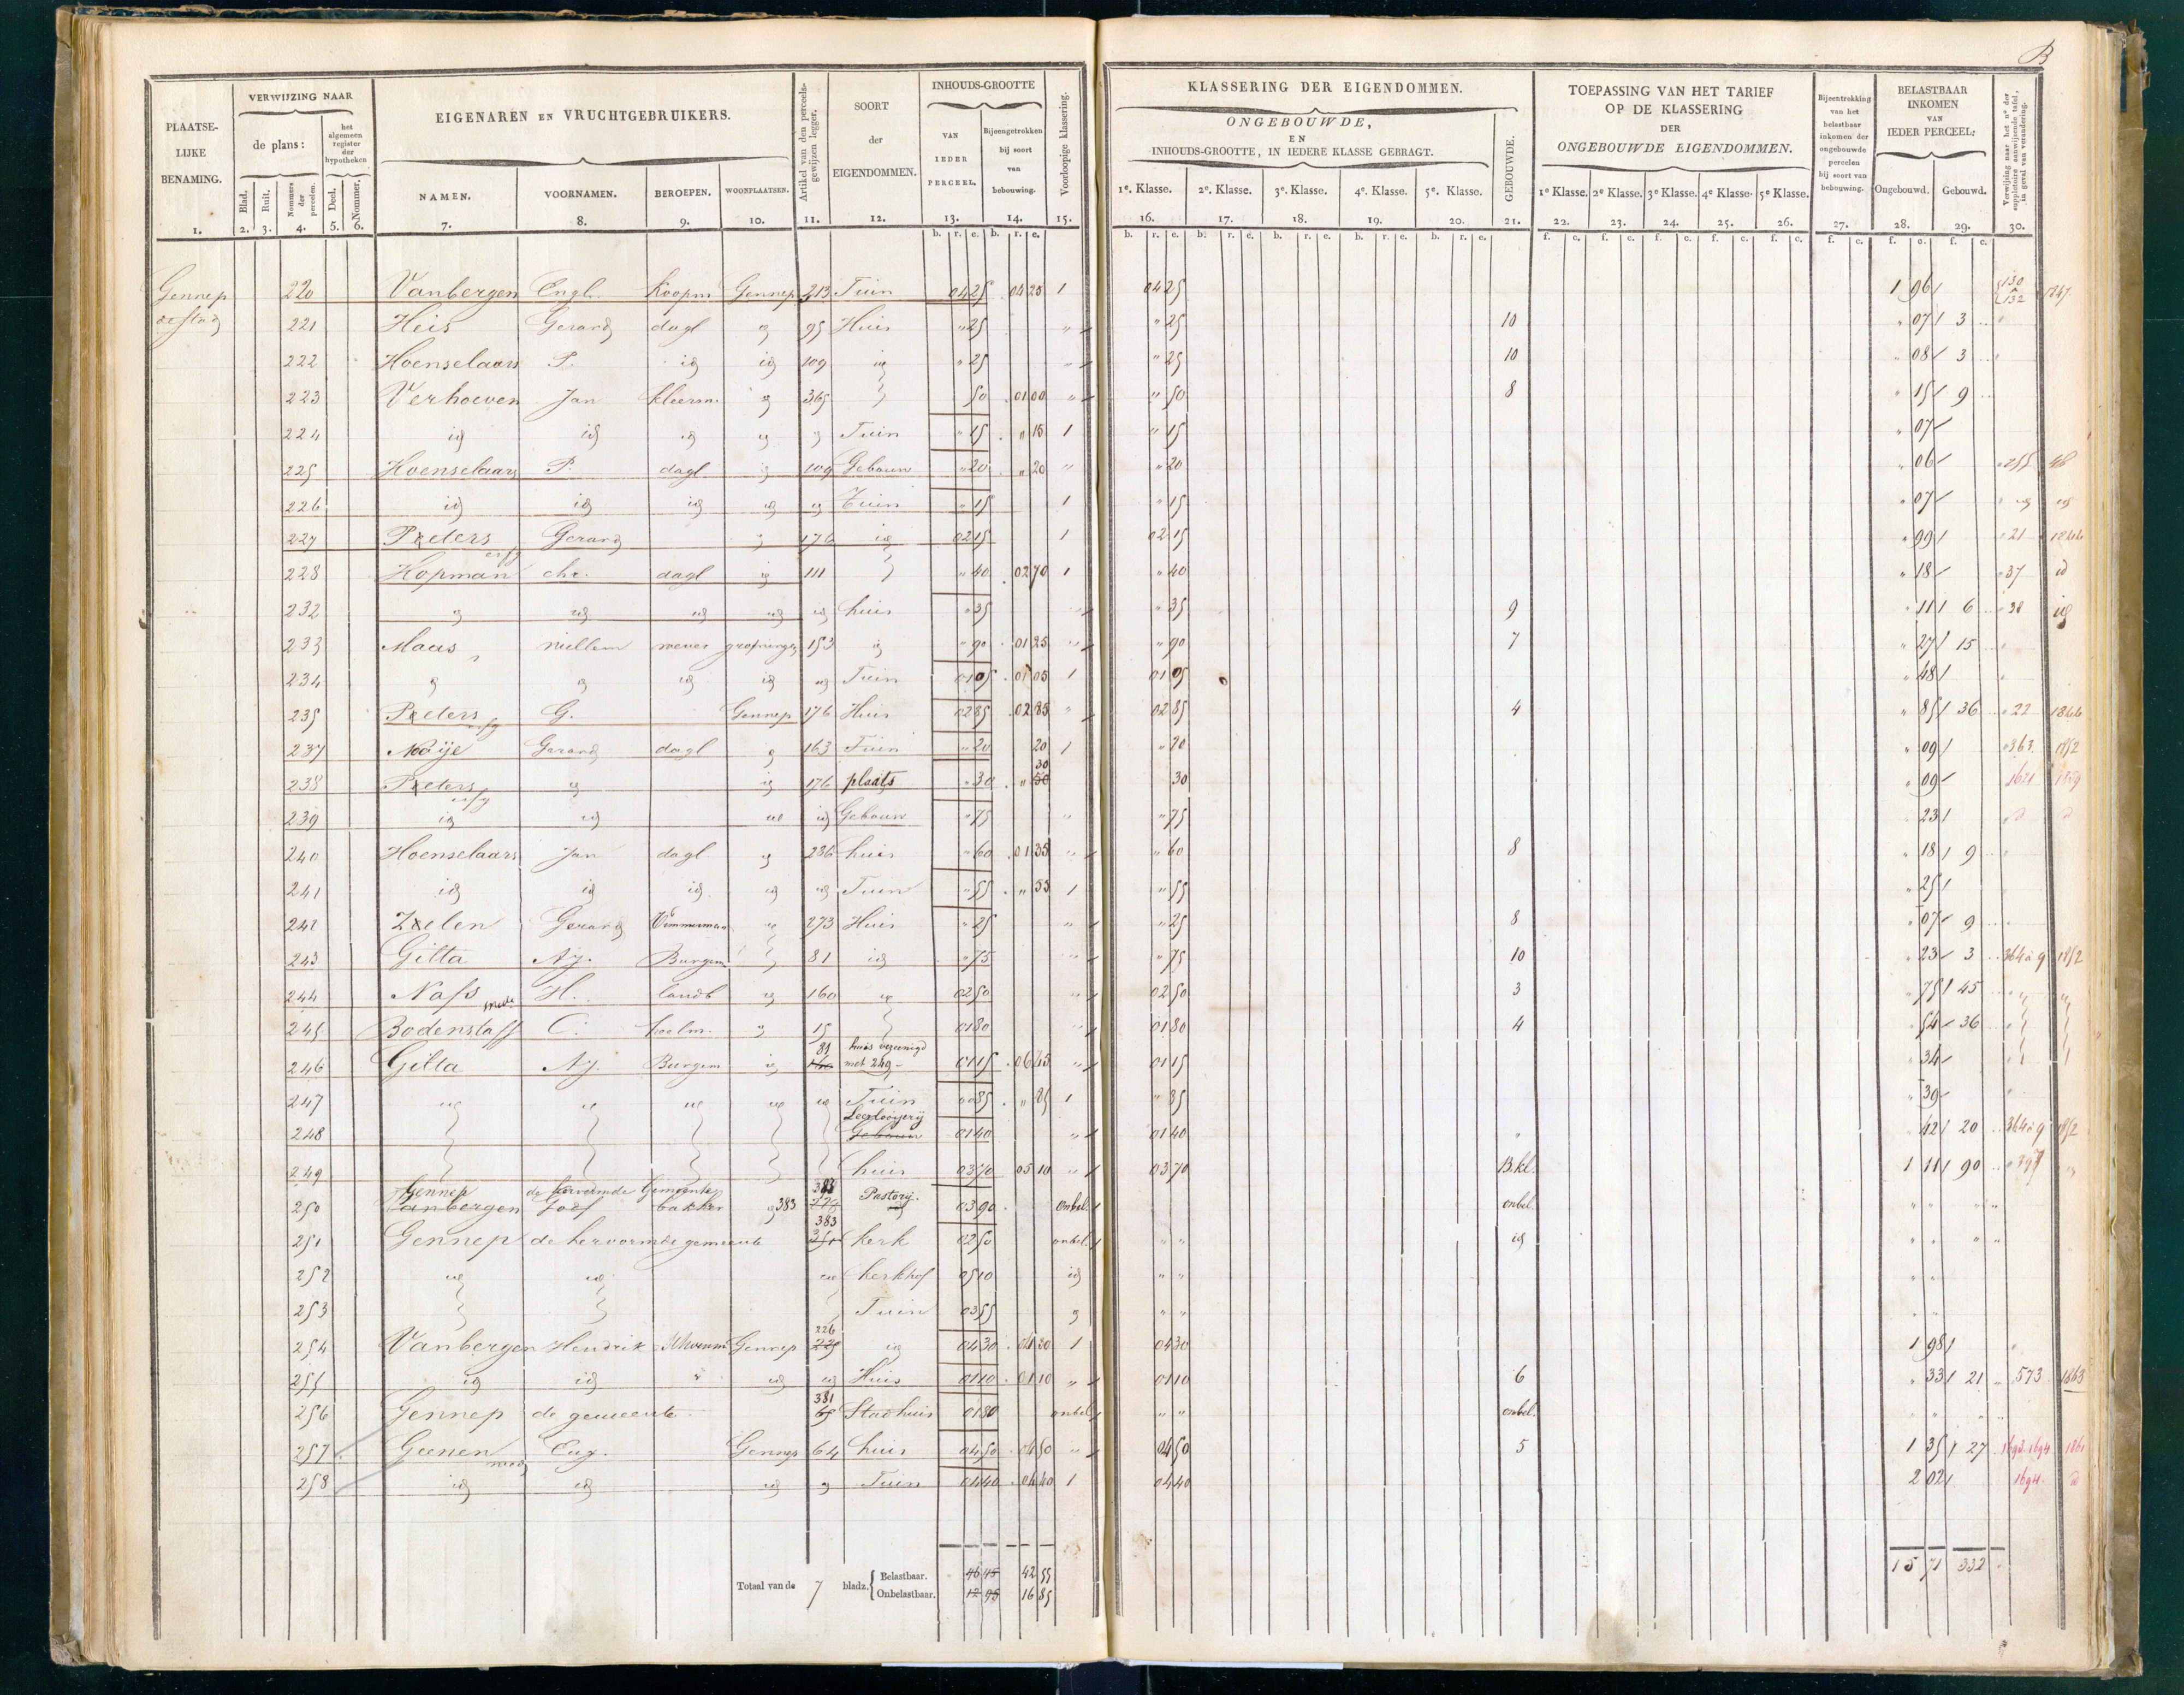 B
PLAATSELIJKE BENAMING.
VERWIJZING NAAR
de plans:
het algemeen register der hypotheken
Blad.
Ruit.
Nommers der perceelen.
Deel.
Nommer.
EIGENAREN EN VRUCHTGEBRUIKERS.
NAMEN.
VOORNAMEN.
BEROEPEN.
WOONPLAATSEN.
Artikel van den perceelsgewijzen legger.
SOORT der EIGENDOMMEN.
INHOUDS-GROOTTE
VAN IEDER PERCEEL.
Bijeengetrokken bij soort van bebouwing.
Voorloopige klassering.
1. 2. 3. 4. 5. 6. 7. 8. 9. 10. 11. 12. 13. 14. 15.
KLASSERING DER EIGENDOMMEN.
ONGEBOUWDE,
EN
INHOUDS-GROOTTE, IN IEDERE KLASSE GEBRAGT.
1e. Klasse. 2e. Klasse. 3e. Klasse. 4e. Klasse. 5e. Klasse.
GEBOUWDE.
TOEPASSING VAN HET TARIEF
OP DE KLASSERING
DER
ONGEBOUWDE EIGENDOMMEN.
1e Klasse. 2e Klasse. 3e Klasse. 4e Klasse. 5e Klasse.
Bijeentrekking van het belastbaar inkomen der ongebouwde percelen bij soort van bebouwing.
BELASTBAAR INKOMEN VAN IEDER PERCEEL:
Ongebouwd. Gebouwd.
Verwijzing naar het no der suppletoire aanwijzende tafel, in geval van verandering.
16. 17. 18. 19. 20. 21. 22. 23. 24. 25. 26. 27. 28. 29. 30.
Gennep 220 Vanbergen Engl. Koopm Gennep 213 Tuin 04 25 04 25 1 04 25 1 96 130 132 1847
de stad 221 Heis Gerard dagl id 95 Huis " 25 " " 25 10 " 07 3
222 Hoenselaars P. id id 109 id " 25 " 25 10 " 08 3
223 Verhoeven Jan kleerm. id 365 50 01 00 " " 50 8 " 15 9
224 id id id id id Tuin " 15 " 15 1 " 15 " 07
225 Hoenselaars P. dagl. id 109 Gebouw " 20 " 20 " " 20 " 06 255 48
226 id id id id id Tuin " 15 1 " 15 " 07 id id
227 Peeters erfg Gerard id 176 id 02 15 1 02 15 " 99 21 1844
228 Hopman chr. dagl id 111 " 40 02 70 1 " 40 " 18 37 id
232 id id id id id huis " 35 " 35 9 " 11 6 38 id
233 Maas willem wever 153 id " 90 01 25 " " 90 7 " 27 15
234 id id id id id Tuin 01 05 01 05 1 01 05 " 48
235 Peeters erfg G. Gennep 176 Huis 02 85 02 85 " 02 85 4 " 85 36 22 1844
237 Nooije Gerard dagl id 163 Tuin " 20 20 1 " 20 " 09 363 1852
238 Peeters erfg id id 176 plaats " 30 " 30 30 " 09 1621 1859
239 id id id id Gebouw " 75 " " 75 23 d d
240 Hoenselaars Jan dagl id 236 huis " 60 01 35 " " 60 8 " 18 9
241 id id id. id id Tuin " 55 " 55 1 " 55 " 25
242 Zeelen Gerard Timmerman id 273 Huis " 25 " " 25 8 " 07 9
243 Gilta Aj. Burgem id 81 id " 75 " " 75 10 " 23 3 364 a 9 1852
244 Nass H. landb id 160 id 02 50 " 02 50 3 " 75 45
245 Bodenstaff C. id 15 01 80 " 01 80 4 " 54 36
246 Gilta Aj. Burgem id 81 huis vereenigd met 249 01 15 06 45 " 01 15 " 34
247 id id id id id Tuin " 85 " 85 1 " 85 " 39
248 Leerlooijerij Gebouw 01 40 " 01 40 " 42 20 364 a 9 1852
249 huis 03 70 05 10 " 03 70 B.kl. 1 11 90 397
250 Gennep de hervormde Gemeente Vanbergen Godf bakker id 383 383 Pastorij 03 90 Onbel. onbel.
251 Gennep de hervormde gemeente 383 351 kerk 02 50 onbel. id
252 id id id kerkhof 05 10 id
253 Tuin 03 55 id
254 Vanbergen Hendrik Gennep 226 225 id 04 30 04 30 1 04 30 1 98
255 id id " id id Huis 01 10 01 10 " 01 10 6 " 33 21 573 1863
256 Gennep de gemeente 381 65 Stadhuis 01 80 onbel onbel.
257 Geenen Eug. Gennep 64 huis 04 50 04 50 " 04 50 5 1 35 27 1694 1861
258 id id id id Tuin 04 40 04 40 1 04 40 2 02 1694 d
Totaal van de 7 bladz. Belastbaar. 46 45 42 55
Onbelastbaar. 12 95 16 85
15 71 332